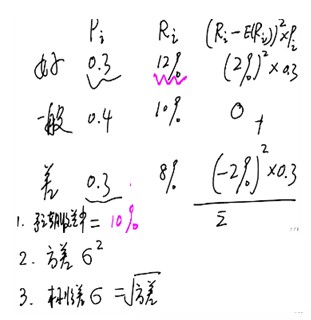 Pi Ri (Ri-E(Ri))²×Pi
好 0.3 12% (2%)²×0.3
一般 0.4 10% 0 +
差 0.3 8% (-2%)²×0.3
Σ
1. 预期收益率=10%
2. 方差 σ²
3. 标准差 σ=√方差